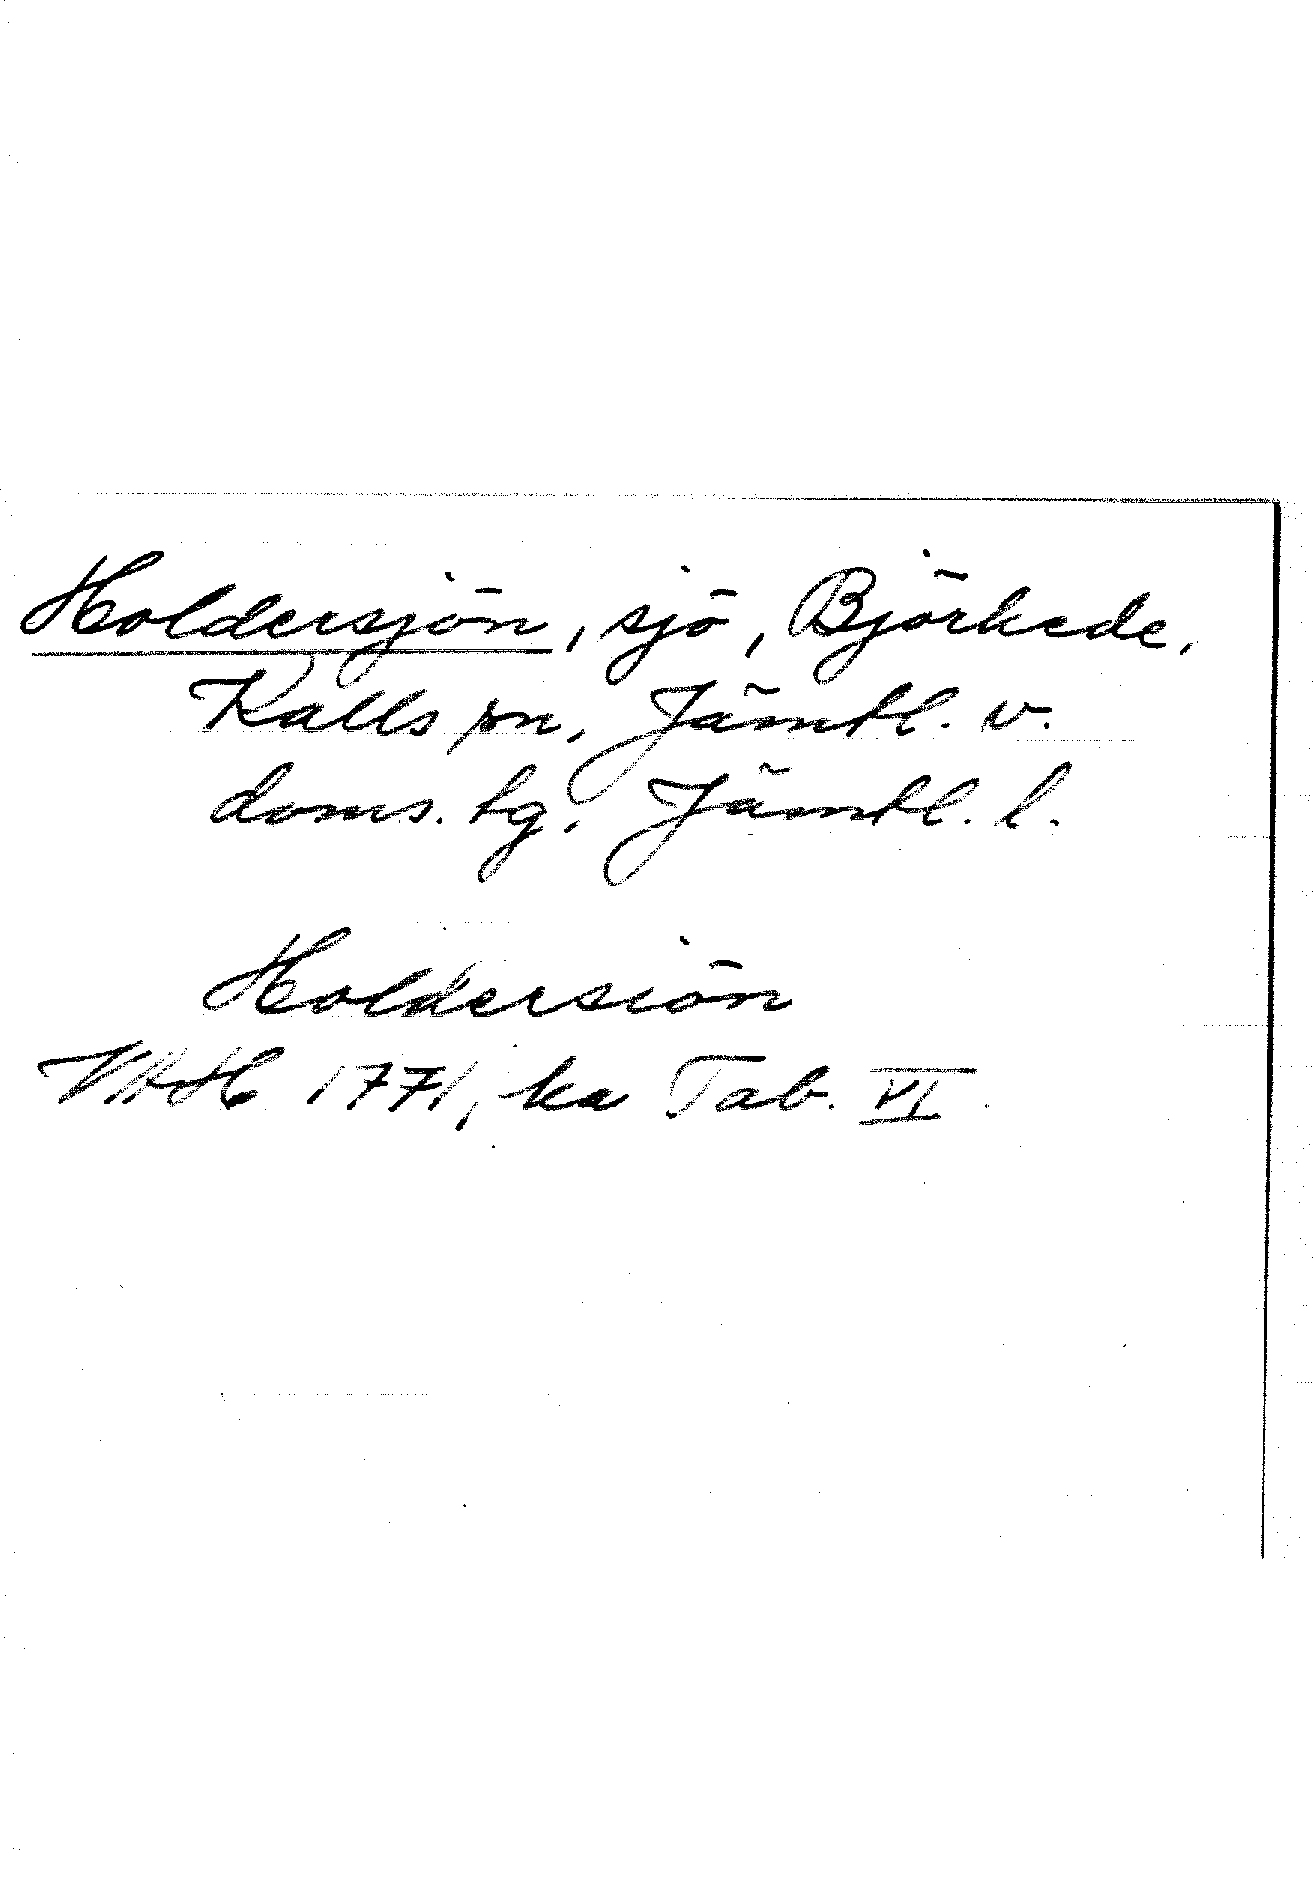 Holdersjön, sjö, Björkede,
Kalls sn, Jämtl. v.
doms. tg, Jämtl. l.
Holdersiön
VAH 1771, ka Tab. VI